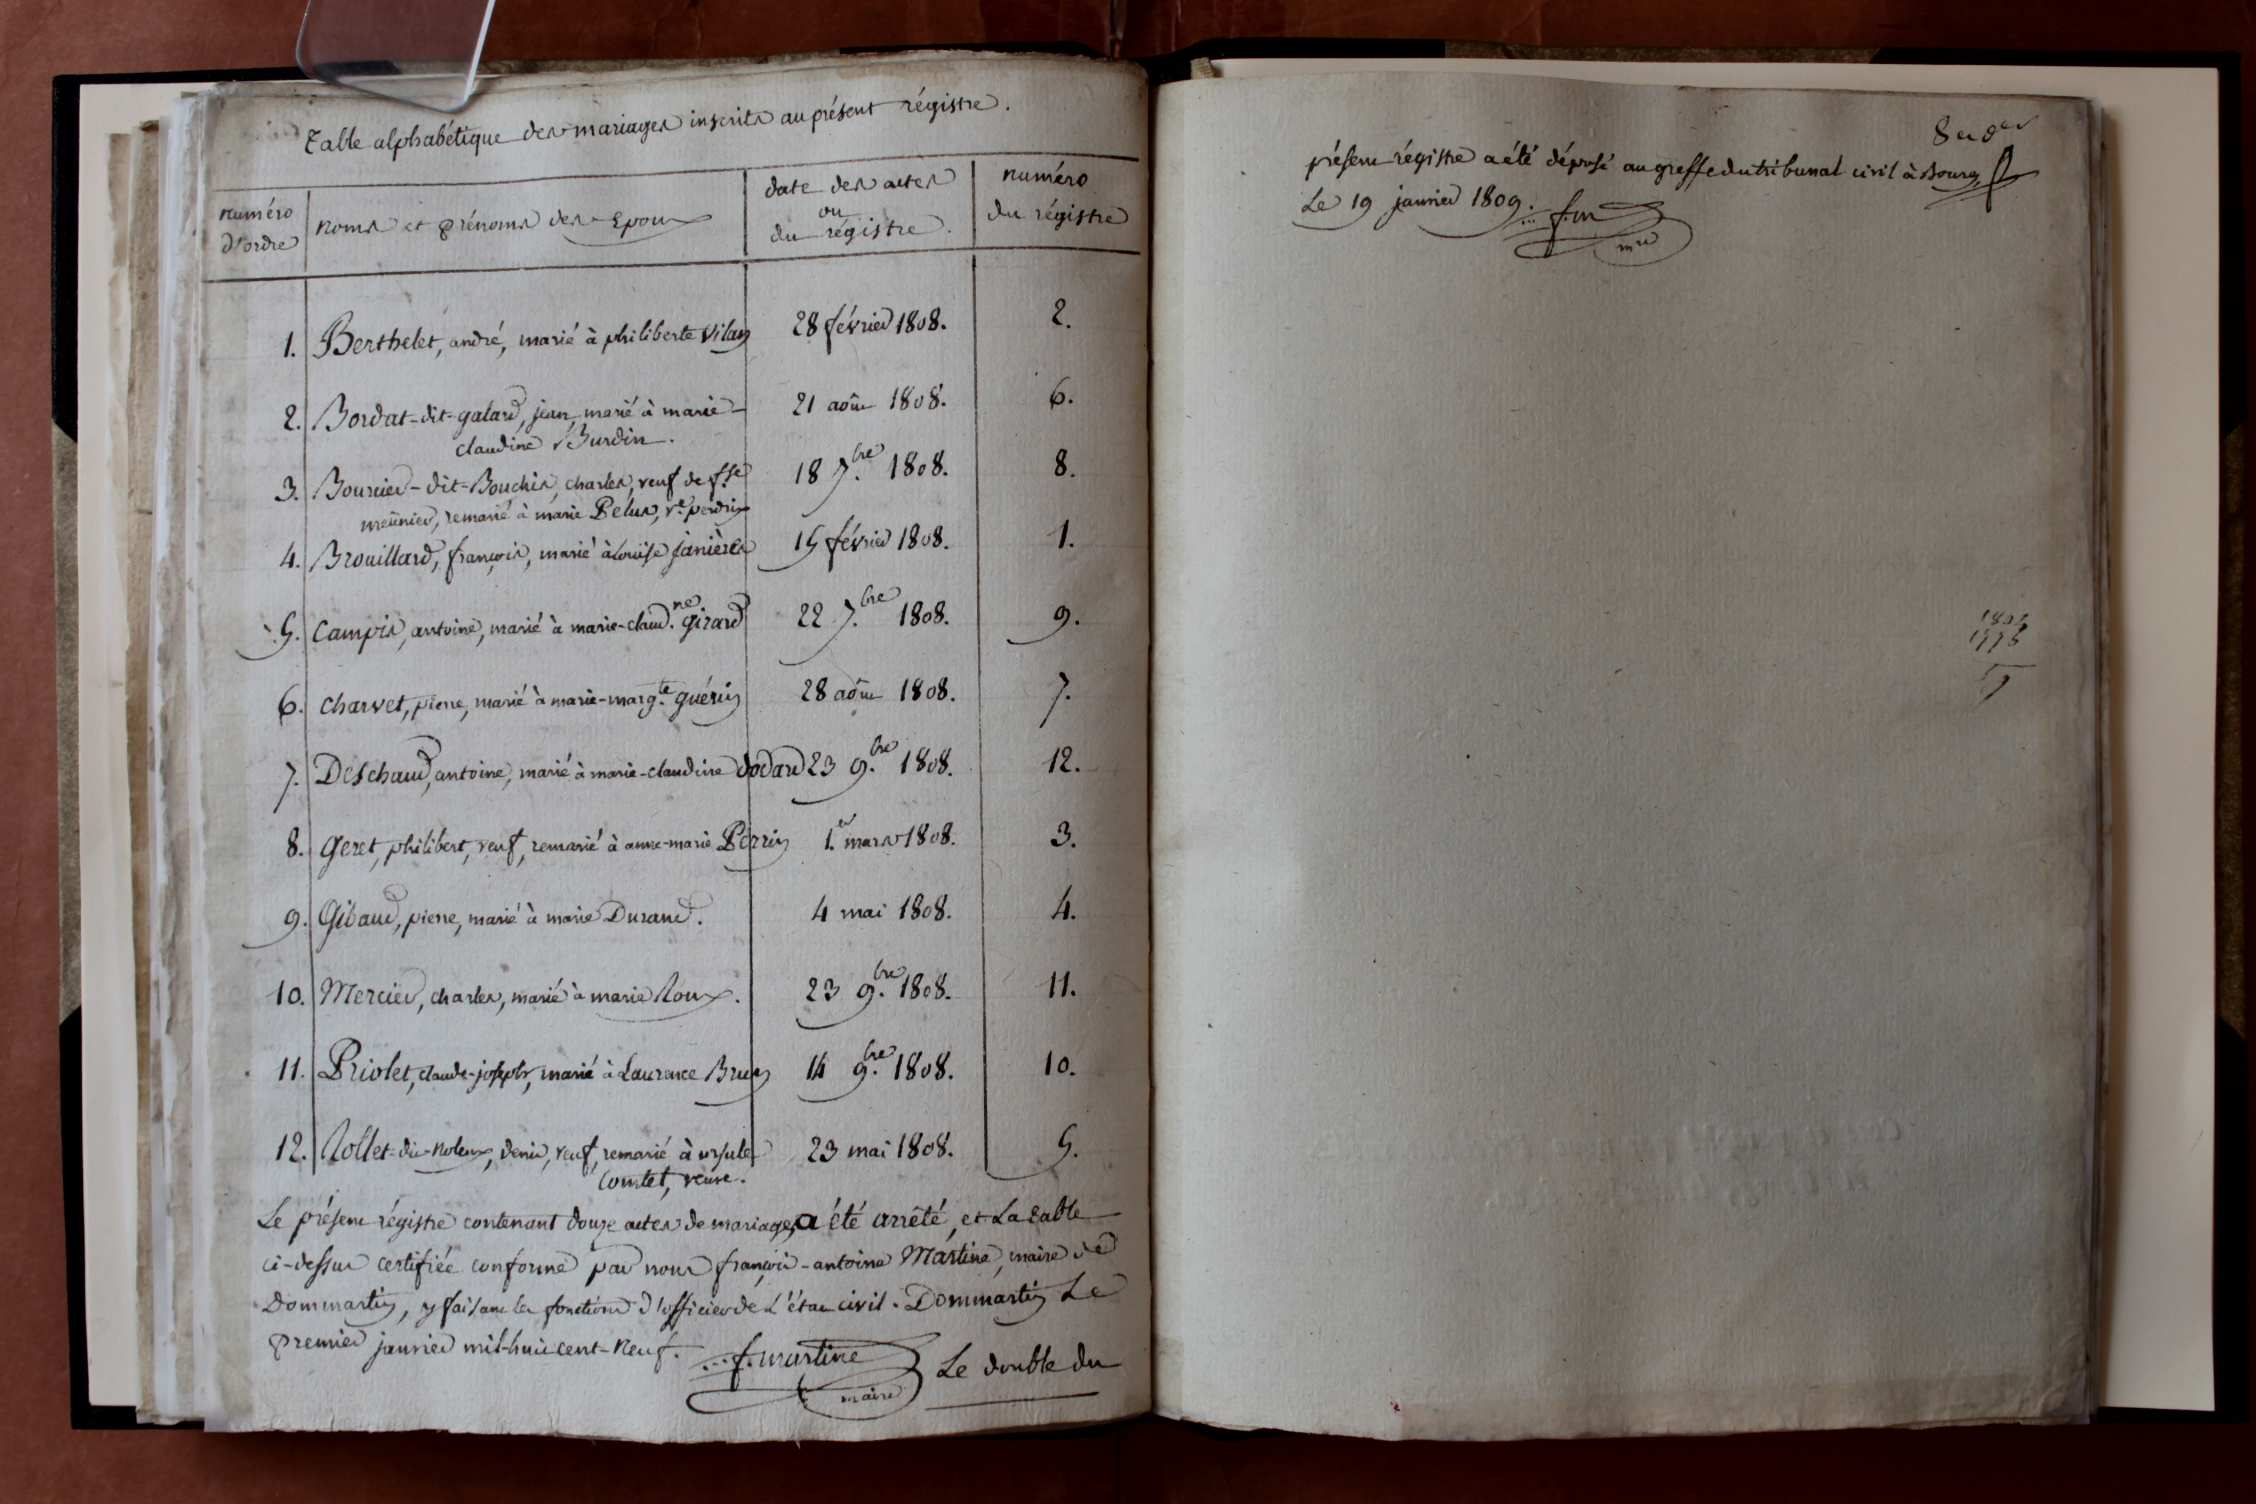 Table alphabétique des mariages inscrits au présent régistre.
numéro d'ordre
noms et prénoms des Epoux
date des actes ou du régistre.
numéro du régistre
1. Berthelet, andré, marié à philiberte Vilan 28 février 1808. 2.
2. Bordat-dit-galard, jean, marié à marie- 21 août 1808. 6.
claudine Burdin.
3. Bourcier-dit-Bouchis, charles, veuf de f.se 18 7.bre 1808. 8.
meünier, remarié à marie Pelus, v.e perdrix
4. Brouillard, françois, marié à Louise janières 15 février 1808. 1.
5. Campis, antoine, marié à marie-claud.ne girard 22 7.bre 1808. 9.
6. Charvet, pierre, marié à marie-marg.te guérin 28 août 1808. 7.
7. Deschaud, antoine, marié à marie-claudine dodard 23 9.bre 1808. 12.
8. Geret, philibert, veuf, remarié à anne-marie Perrin 1.er mars 1808. 3.
9. Gibaud, pierre, marié à marie Durand. 4 mai 1808. 4.
10. Mercier, charles, marié à marie Roux. 23 9.bre 1808. 11.
11. Priolet, claude-joseph, marié à Laurence Brun 14 9.bre 1808. 10.
12. Rollet-dit-Noleux, denis, veuf, remarié à ursule 23 mai 1808. 5.
Comtet, veuve.
Le présent régistre contenant douze actes de mariages, a été arrêté, et La table
ci-dessus certifiée conforme par nous françois-antoine Martine, maire de
Dommartin, y faisant les fonctions d'officier de L'état civil. Dommartin Le
premier janvier mil-huit cent-neuf.
f. martine
maire
Le double du
présent régistre a été déposé au greffe du tribunal civil à Bourg,
Le 19 janvier 1809.
f. m
mre